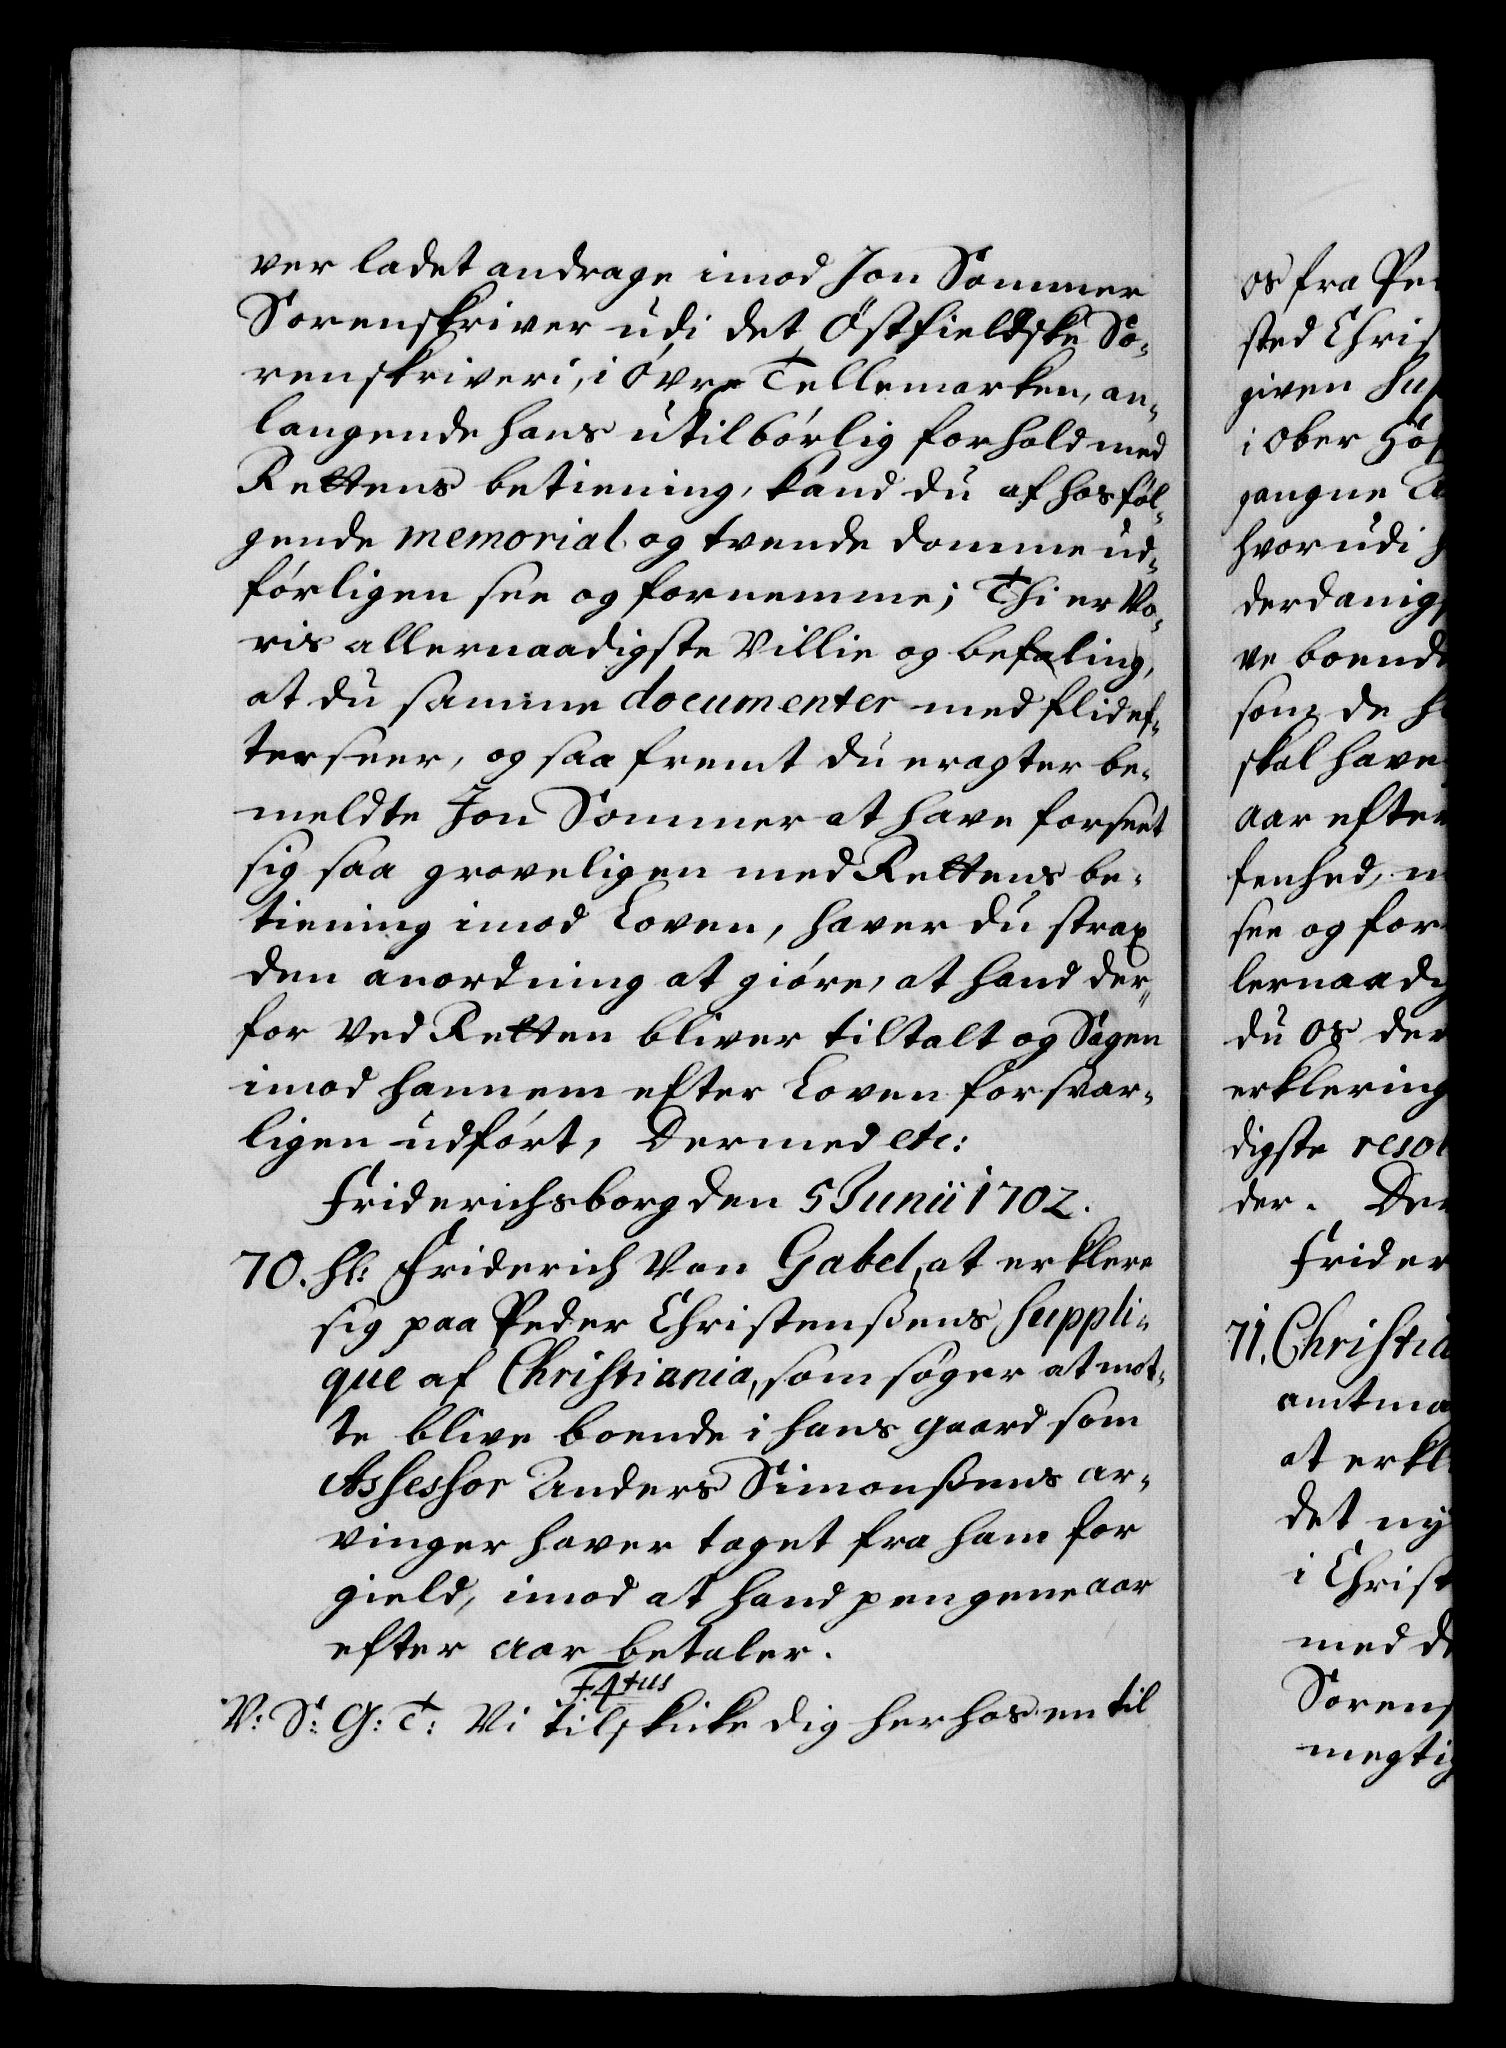 ver ladet andrage imod Jon Sommer
Sorenskriver udi det Östfieldske So-
renskriveri, i Övre Tellemarken, an-
langende hans utilbörlig forhold med
Rettens betiening, kand du af hosföl-
gende memorial og tvende domme ud-
förligen see og fornemme; Thi er Vo-
ris allernaadigste Villie og befaling,
at du samme documenter med flid ef-
terseer, og saa fremt du eragter be-
meldte Jon Sommer at have forseet
sig saa groveligen med Rettens be-
tiening imod Loven, haver du strax
den anordning at giöre, at hand der-
for ved Retten bliver tiltalt og Sagen
imod hannem efter Loven forsvar-
ligen udfört, Dermed etc:
Friderichsborg den 5 Junii 1702.
70. Hr: Friderich Von Gabel, at erklere
sig paa Peder Christenßens Suppli-
que af Christiania, som söger at mot-
te blive boende i hans gaard som
Assessor Anders Simonßens ar-
vinger haver taget fra ham for
gield, imod at hand pengene aar
efter aar betaler.
F. 4tus
V: S: G: T: Vi tilskicke dig herhos en til
os fra Pe
sted Chris
given Sup
i Ober Hö
gangne
hvorudi
derdanig
ve boend
som de
skal have
aar efter
fenhed,
see og for
lernaadig
du os der
erklering
digste resol
der. Der
Frider
71. Christia
amtma
at erkl
det ny
i Christ
med d
Sorens
megtig